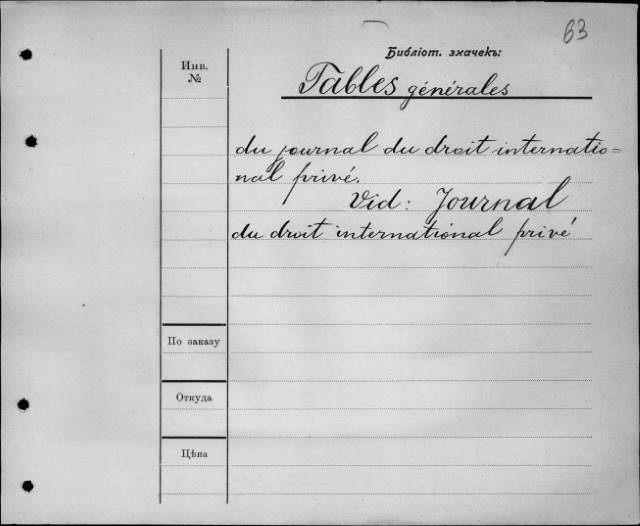 63
Библіот. значекъ:
Инв.
№
Tables générales
du journal du droit internatio=
nal privé.
Vid: Journal
du droit international privé
По заказу
Откуда
Цѣна